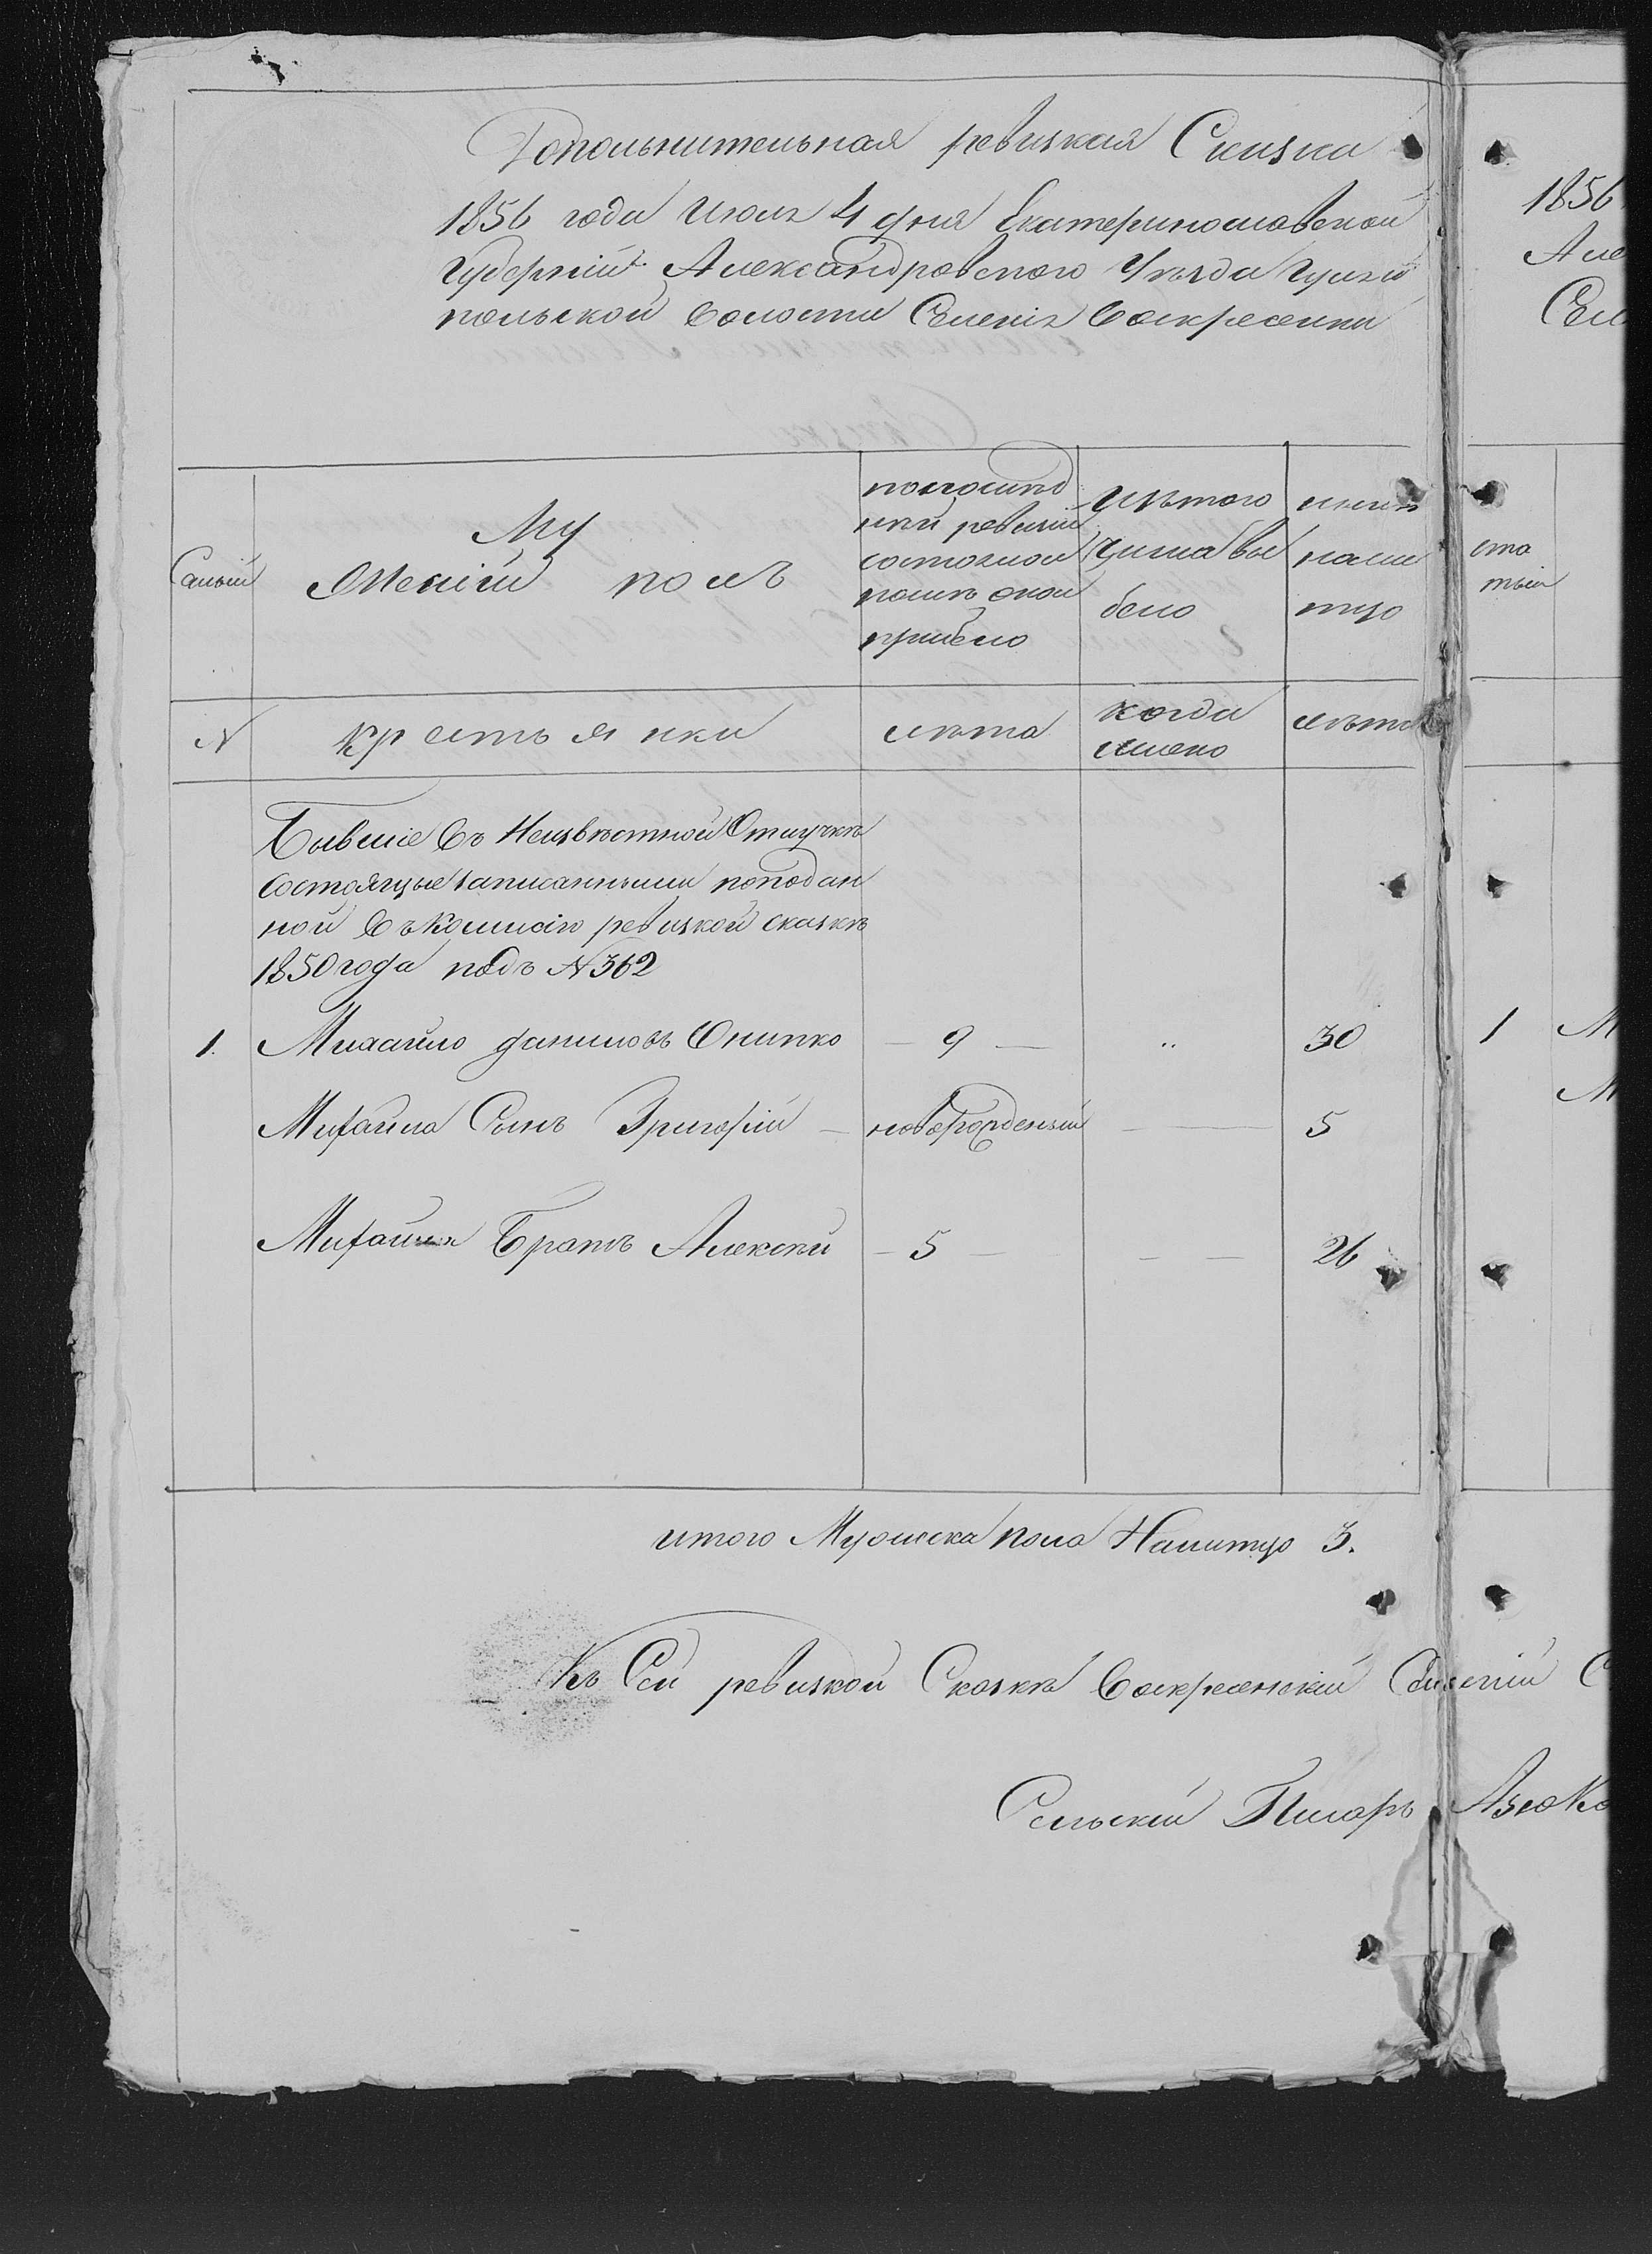 Дополнительная ревизкая Сказка
1856 года июля 4 дня Екатеринославской
Губерніи Александровского Уѣзда Гуляй
польской Волости Селенія Воскресенки
Му
жескій полъ
ный ревизіи
состояло
послѣ оной
прибыло
Изътого
Числа вы
было
нынѣ
на ли
тцо
N
крестьянки
лѣта
когда
имено
лѣта
Бывшіе Въ Неизвѣстной Отлучкѣ
Состоящые записанными поподан
ной Въ Комисію ревизкой сказкѣ
1850 года подъ N 362
1. Михайло даниловъ Онипко — 9 — „ 30
Михайла Сынъ Григорій — новорожденый — 5
Михайлы Братъ Алексѣй — 5 — — 26
итого Мужеска пола Налитцо 3.
Къ Сей ревизкой Сказкѣ Воскресенскій
Сельскій Писарь
1856
Але
Сел
1 М
М